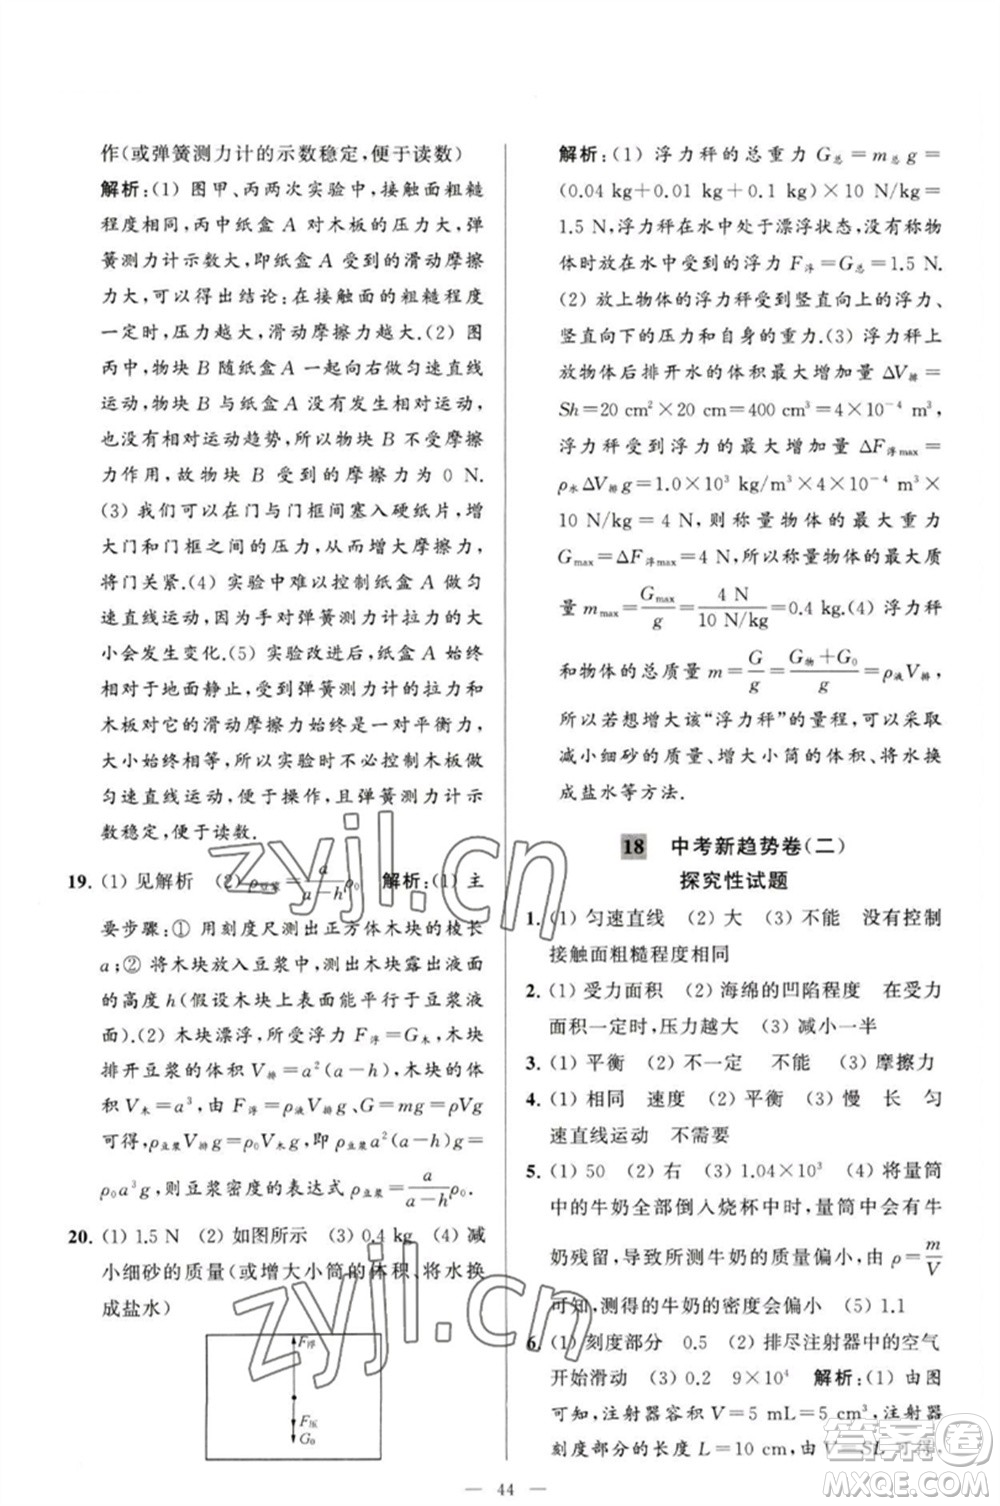 作(或弹簧测力计的示数稳定,便于读数)
解析:(1) 图甲、丙两次实验中,接触面粗糙
程度相同,丙中纸盒 A 对木板的压力大,弹
簧测力计示数大,即纸盒 A 受到的滑动摩擦
力大,可以得出结论:在接触面的粗糙程度
一定时,压力越大,滑动摩擦力越大.(2) 图
丙中,物块 B 随纸盒 A 一起做匀速直线
运动,物块 B 与纸盒 A 没有发生相对运动,
也没有相对运动趋势,所以物块 B 不受摩擦
力作用,故物块 B 受到的摩擦力为 0 N.
(3) 我们可以在门与门框间塞入硬纸片,增
大门和门框之间的压力,从而增大摩擦力,
将门关紧.(4) 实验中难以控制纸盒 A 做匀
速直线运动,因为手对弹簧测力计拉力的大
小会发生变化.(5) 实验改进后,纸盒 A 始终
相对于地面静止,受到弹簧测力计的拉力和
木板对它的滑动摩擦力始终是一对平衡力,
大小始终相等,实验时不必控制木板做
匀速直线运动,便于操作,且弹簧测力计示
数稳定,便于读数.
19. (1) 见解析 (2) ρ豆浆=a/(a-h)ρ₀ 解析:(1) 主
要步骤:① 用刻度尺测出正方体木块的棱长
a;② 将木块放入豆浆,测出木块露出液面
的高度 h(假设木块上表面能平行于豆浆液
面).(2) 木块漂浮,所受浮力 F浮=G木,木块
排开豆浆的体积 V排=a²(a-h),木块的体积
V木=a³,由 F浮=ρ液V排g、G=mg=ρVg
可得,ρ豆浆V排g=ρ₀V木g,即 ρ豆浆a²(a-h)g=
ρ₀a³g,则豆浆密度的表达式 ρ豆浆=a/(a-h)ρ₀.
20. (1) 1.5 N (2) 如图所示 (3) 0.4 kg (4) 减
小细砂的质量(或增大小筒的体积、将水换
成盐水)
F浮
F压
G₀
解析:(1) 浮力秤的总重力 G总=m总g=
(0.04 kg+0.01 kg+0.1 kg)×10 N/kg=
1.5 N,浮力秤在水中处于漂浮状态,没有称物
体时放在水中受到的浮力 F浮=G总=1.5 N.
(2) 放上物体的浮力秤受到竖直向上的浮力、
竖直向下的压力和自身的重力.(3) 浮力秤上
放物体后排开水的体积最大增加量 ΔV排=
Sh=20 cm²×20 cm=400 cm³=4×10⁻⁴ m³,
浮力秤受到浮力的最大增加量 ΔF浮max=
ρ水ΔV排g=1.0×10³ kg/m³×4×10⁻⁴ m³×
10 N/kg=4 N,则称量物体的最大重力
Gmax=ΔF浮max=4 N,所以称量物体的最大质
量 mmax=Gmax/g=4 N/10 N/kg=0.4 kg.(4) 浮力秤
和物体的总质量 m=G/g=(G物+G₀)/g=ρ液V排,
所以若想增大该“浮力秤”的量程,可以采取
减小细砂的质量、增大小筒的体积、将水换
成盐水等方法.
18 中考新趋势卷(二)
探究性试题
1. (1) 匀速直线 (2) 大 (3) 不能 没有控制
接触面粗糙程度相同
2. (1) 受力面积 (2) 海绵的凹陷程度 在受力
面积一定时,压力越大 (3) 减小一半
3. (1) 平衡 (2) 不一定 不能 (3) 摩擦力
4. (1) 相同 速度 (2) 平衡 (3) 慢 长 匀
速直线运动 不需要
5. (1) 50 (2) 右 (3) 1.04×10³ (4) 将量筒
中的牛奶全部倒入烧杯中时,量筒中会有牛
奶残留,导致所测牛奶的质量偏小,由 ρ=m/V
可知,测得的牛奶的密度会偏小 (5) 1.1
6. (1) 刻度部分 0.5 (2) 排尽注射器中的空气
开始滑动 (3) 0.2 9×10⁴ 解析:(1) 由图
可知,注射器容积 V=5 mL=5 cm³,注射器
刻度部分的长度 L=10 cm,由 V=SL 可得,
— 44 —
zyjl.cn
zyjl.cn
答案圈
MXQE.COM